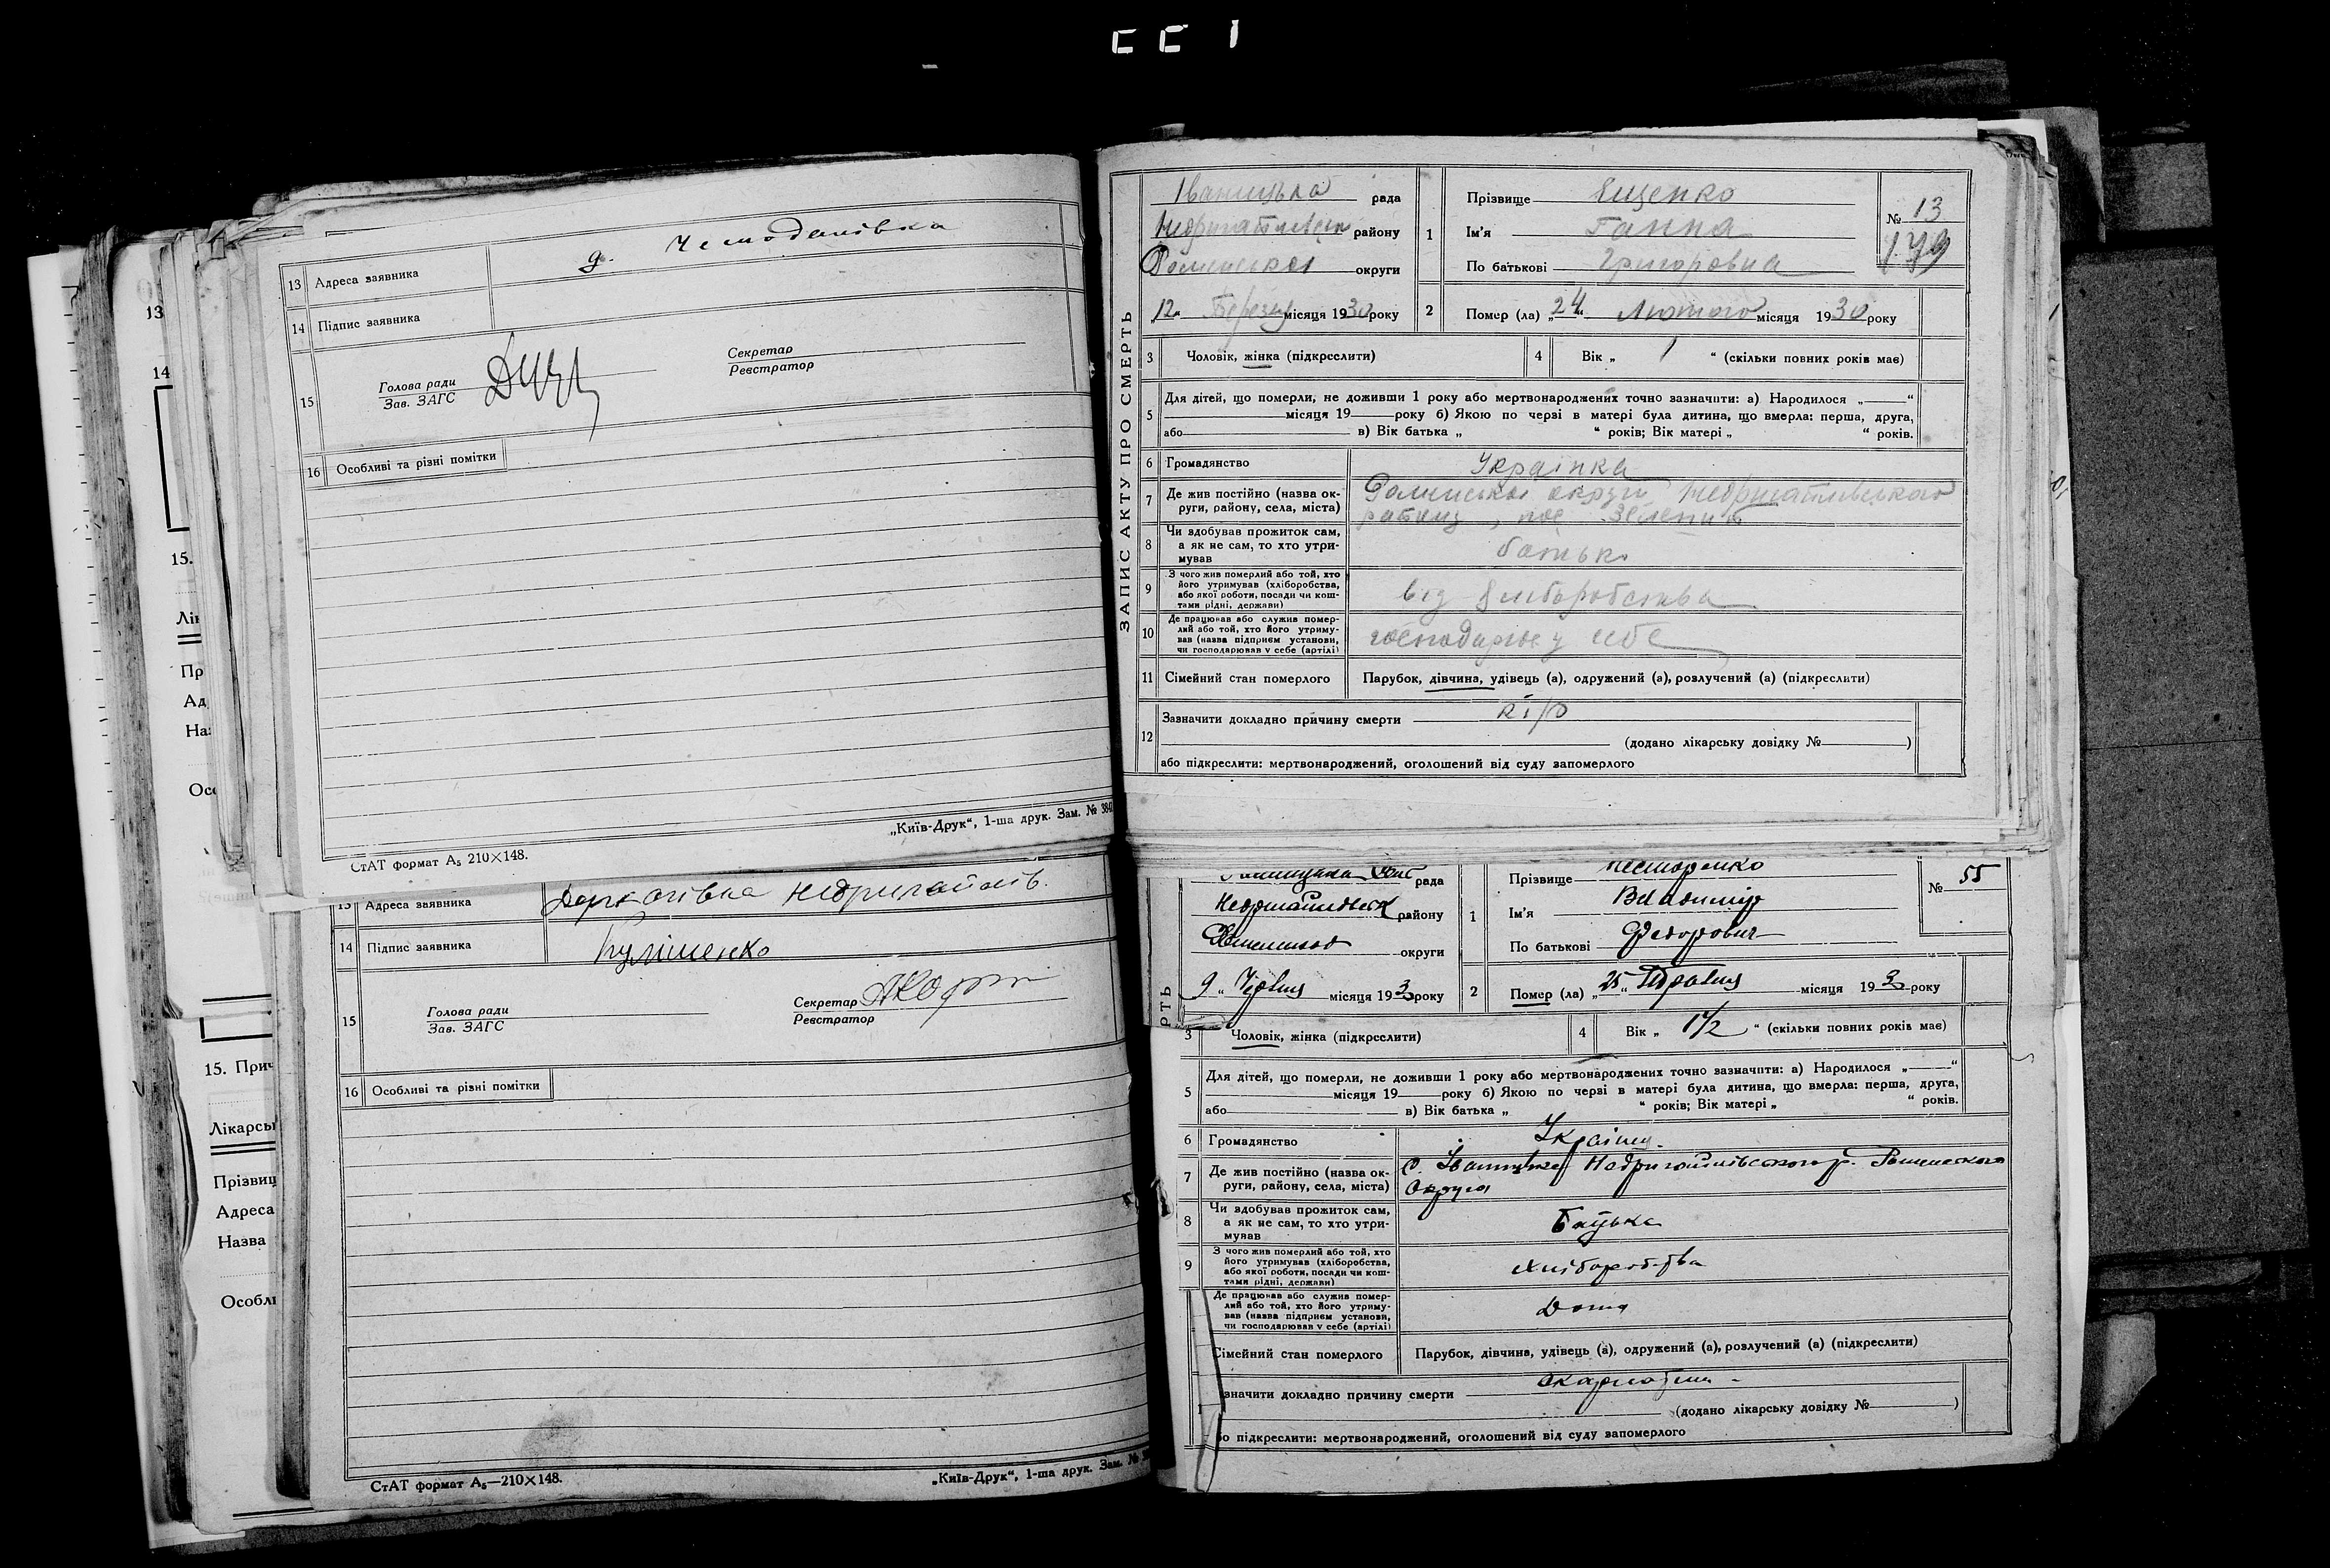 13 Адреса заявника д. Чемоданівка
14 Підпис заявника
15 Голова ради
Зав. ЗАГС
Секретар
Реєстратор
16 Особливі та різні помітки
СтАТ формат А₅ 210×148.
„Київ-Друк“, 1-ша друк. Зам. № 384
13
14
15.
Лік
Пр
Ад
На
Осо
13 Адреса заявника Недригайлів.
14 Підпис заявника Кулішенко
15 Голова ради
Зав. ЗАГС
Секретар
Реєстратор
16 Особливі та різні помітки
СтАТ формат А₅—210×148.
„Київ-Друк“, 1-ша друк. Зам. №
15. Прич
Лікарсь
Прізвищ
Адреса
Назва
Особл
ЗАПИС АКТУ ПРО СМЕРТЬ
Іваницька рада
району
Роменської округи
„12“ Березня місяця 1930 року
1 Прізвище Ященко
Ім'я Ганна
По батькові Григоровна
№ 13
179
2 Помер (ла) „24“ Лютого місяця 1930 року
3 Чоловік, жінка (підкреслити)
4 Вік „ 1 “ (скільки повних років має)
5 Для дітей, що померли, не доживши 1 року або мертвонароджених точно зазначити: а) Народилося „ “
місяця 19 року б) Якою по черзі в матері була дитина, що вмерла: перша, друга,
або в) Вік батька „ “ років; Вік матері „ “ років.
6 Громадянство Українка
7 Де жив постійно (назва ок-
руги, району, села, міста) Роменської округи, Недригайлівського
району, пос. Зелений
8 Чи здобував прожиток сам,
а як не сам, то хто утри-
мував батько
9 З чого жив померлий або той, хто
його утримував (хліборобства,
або якої роботи, посади чи кош-
тами рідні, держави) від хліборобства
10 Де працював або служив помер-
лий або той, хто його утриму-
вав (назва підприєм установи,
чи господарював у себе (артілі) господарює у себе
11 Сімейний стан померлого Парубок, дівчина, удівець (а), одружений (а), розлучений (а) (підкреслити)
12 Зазначити докладно причину смерти кір
(додано лікарську довідку № )
або підкреслити: мертвонароджений, оголошений від суду запомерлого
рада
району
округи
9 „ Червня місяця 193 року
1 Прізвище Несторенко
Ім'я Владимір
По батькові Федорович
№ 55
2 Помер (ла) „25“ Травня місяця 193 року
РТЬ
3 Чоловік, жінка (підкреслити)
4 Вік „ 1½ “ (скільки повних років має)
5 Для дітей, що померли, не доживши 1 року або мертвонароджених точно зазначити: а) Народилося „ “
місяця 19 року б) Якою по черзі в матері була дитина, що вмерла: перша, друга,
або в) Вік батька „ “ років; Вік матері „ “ років.
6 Громадянство
7 Де жив постійно (назва ок-
руги, району, села, міста) С. Недригайлівского р. Роменского
Округа
8 Чи здобував прожиток сам,
а як не сам, то хто утри-
мував Батько
9 З чого жив померлий або той, хто
його утримував (хліборобства,
або якої роботи, посади чи кош-
тами рідні, держави) хліборобства
Де працював або служив помер-
лий або той, хто його утриму-
вав (назва підприєм установи,
чи господарював у себе (артілі) Дома
Сімейний стан померлого Парубок, дівчина, удівець (а), одружений (а), розлучений (а) (підкреслити)
значити докладно причину смерти
(додано лікарську довідку № )
бо підкреслити: мертвонароджений, оголошений від суду запомерлого